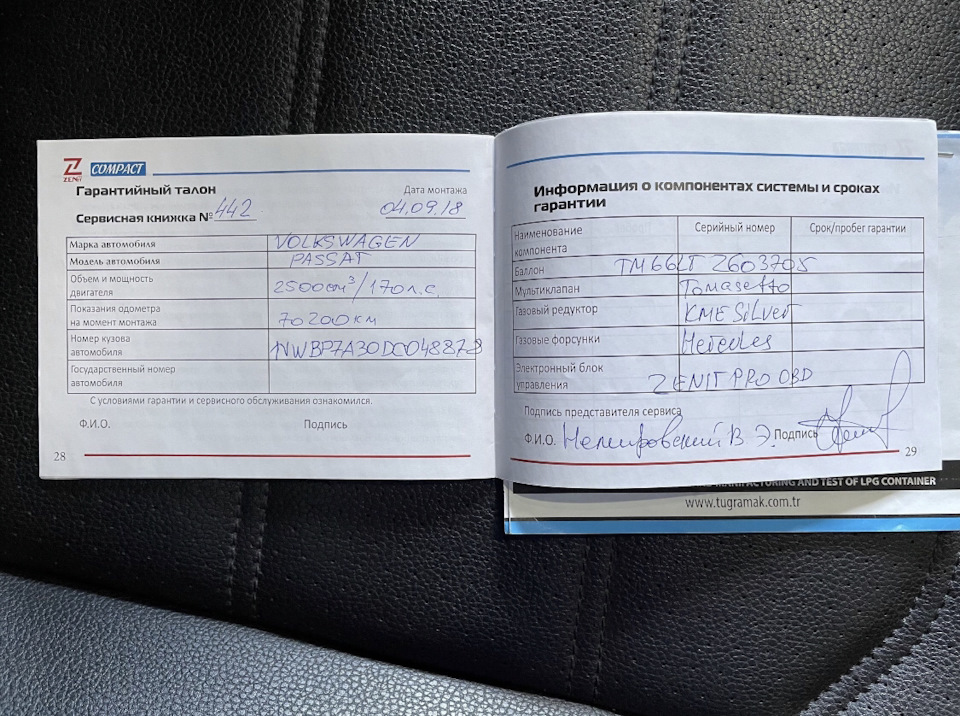 ZENIT COMPACT
Гарантийный талон
Дата монтажа
Сервисная книжка № 442
04.09.18
Марка автомобиля VOLKSWAGEN
Модель автомобиля PASSAT
Объем и мощность
двигателя 2500 см³/170 л.с.
Показания одометра
на момент монтажа 70200 км
Номер кузова
автомобиля 1VWBP7A30DC048878
Государственный номер
автомобиля
С условиями гарантии и сервисного обслуживания ознакомился.
Ф.И.О. Подпись
28
Информация о компонентах системы и сроках
гарантии
Наименование
компонента Серийный номер Срок/пробег гарантии
Баллон TM66LT 2603705
Мультиклапан Tomasetto
Газовый редуктор KME Silver
Газовые форсунки Hercules
Электронный блок
управления ZENIT PRO OBD
Подпись представителя сервиса
Ф.И.О. Немировский В Э. Подпись
29
MANUFACTURING AND TEST OF LPG CONTAINER
www.tugramak.com.tr